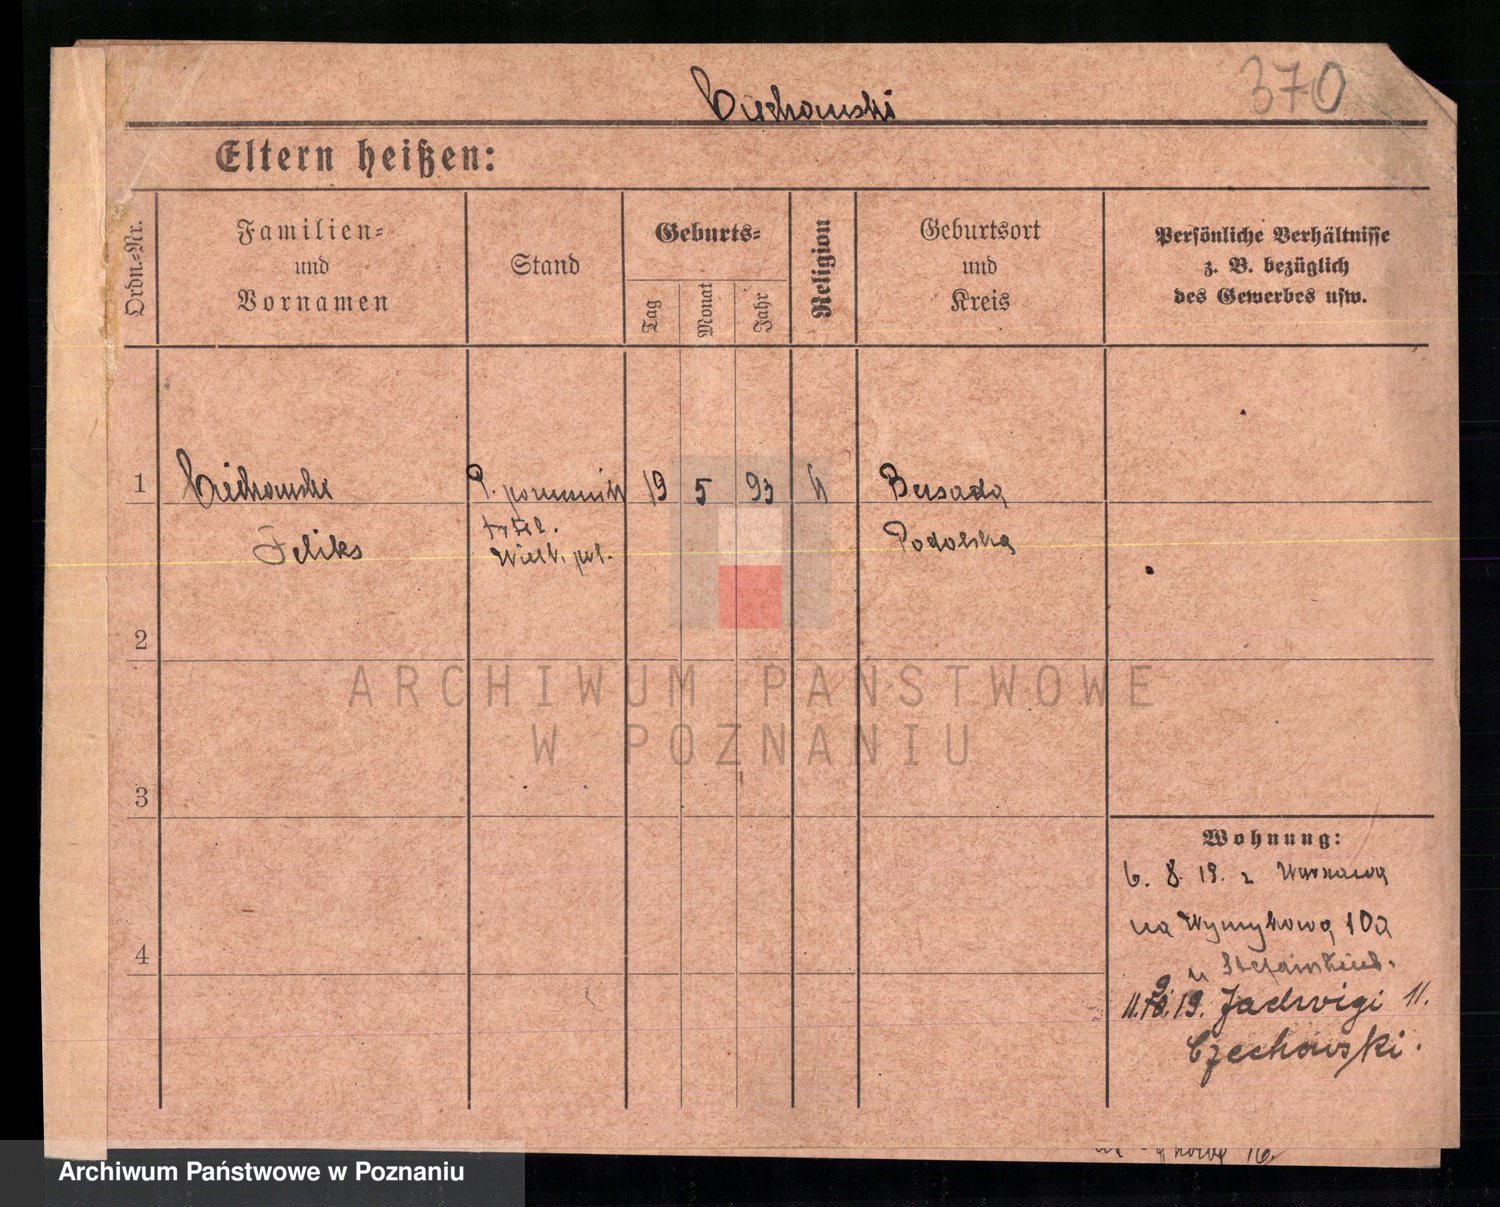 Ciechowski
370
Eltern heißen:
Ordn.-Nr.
Familien-
und
Vornamen
Stand
Geburts-
Tag
Monat
Jahr
Religion
Geburtsort
und
Kreis
Persönliche Verhältnisse
z. B. bezüglich
des Gewerbes usw.
1 Ciechowski 19 5 93
Feliks
Podolska
2
3
4
Wohnung:
6. 8. 19. z Warszawa
na 10a
u
11. 19. Jadwigi 11.
Czechowski.
16.
ARCHIWUM PAŃSTWOWE
W POZNANIU
Archiwum Państwowe w Poznaniu